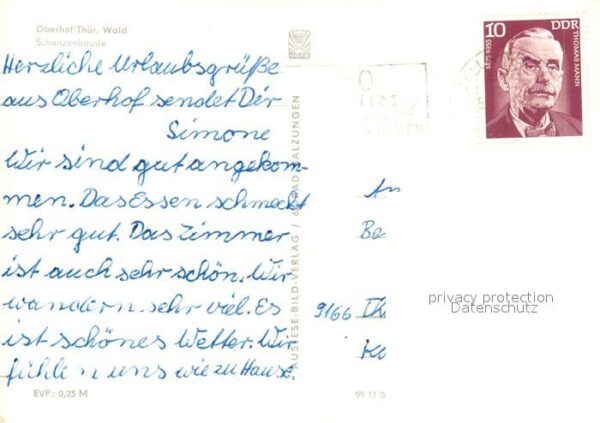 Oberhof/Thür. Wald
Schanzenbaude
Herzliche Urlaubsgrüße
aus Oberhof sendet Dir
Simone
Wir sind gut angekom-
men. Das Essen schmeckt
sehr gut. Das Zimmer
ist auch sehr schön. Wir
wandern sehr viel. Es
ist schönes Wetter. Wir
fühlen uns wie zu Hause.
EVP: 0,25 M
AUSLESE-BILD-VERLAG / BAD SALZUNGEN
10
DDR
1875-1955
THOMAS MANN
An
Be
9166
privacy protection
Datenschutz
09 11 0